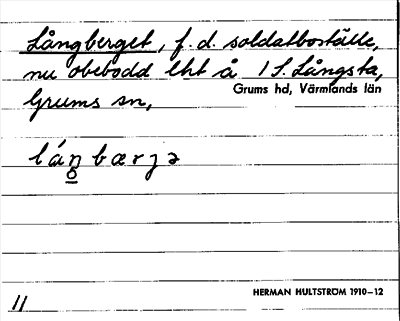 Långberget, f. d. soldatboställe,
nu obebodd lht å 1 S. Långsta,
Grums hd, Värmlands län
Grums sn,
HERMAN HULTSTRÖM 1910–12
11